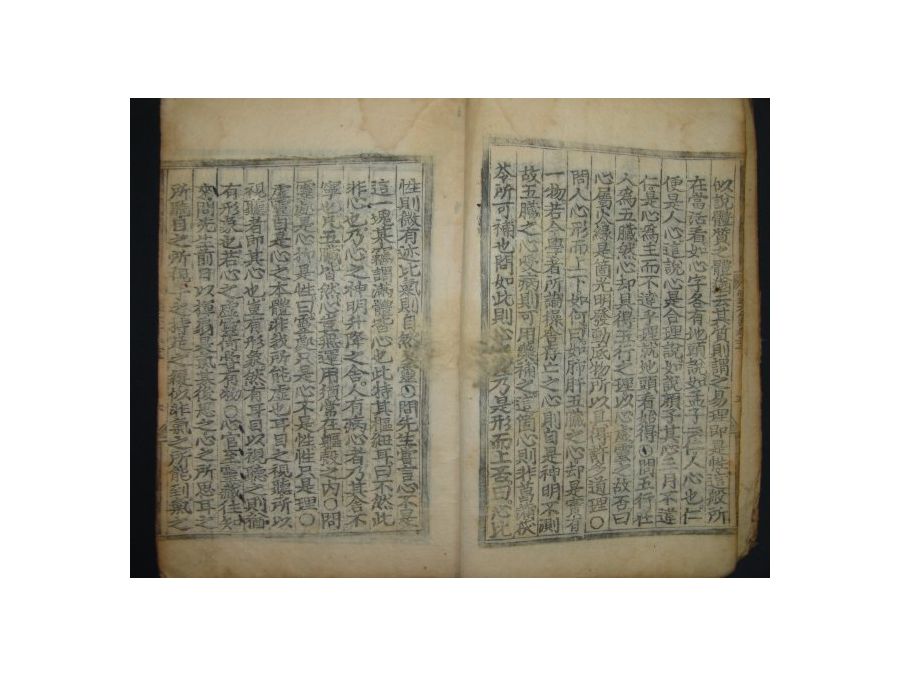 似說體質之體猶云其質則謂之易理即是性這般所
在當活看如心字各有地頭說如孟子云仁人心也仁
便是人心這說心是合理說如說顏子其心三月不違
仁是心爲主而不違乎理就地頭看始得〇問五行在
人爲五臟然心却具得五行之理以心虛靈之故否曰
心屬火緣是箇光明發動底物所以具得許多道理〇
問人心形而上下如何曰如肺肝五臟之心却是實有
一物若今學者所論操舍存亡之心則自是神明不測
故五臟之心受病則可用藥補之這箇心則非菖蒲茯
苓所可補也問如此則心之理乃是形而上否曰心比
性則微有迹比氣則自然又靈〇問先生嘗言心不是
這一塊某竊謂滿體皆心也此特其樞紐耳曰不然此
非心也乃心之神明升降之舍人有病心者乃其舍不
寧也凡五臟皆然心豈無運用須常在軀殼之內〇問
靈處是心抑是性曰靈處只是心不是性性只是理〇
虛靈自是心之本體非我所能虛也耳目之視聽所以
視聽者即其心也豈有形象然有耳目以視聽之則猶
有形象也若心之虛靈何嘗有物〇心官至靈藏往知
來問先生前日以揮扇是氣某後思之心之所思耳之
所聽目之所視手之持足之履似非氣之所能到氣之